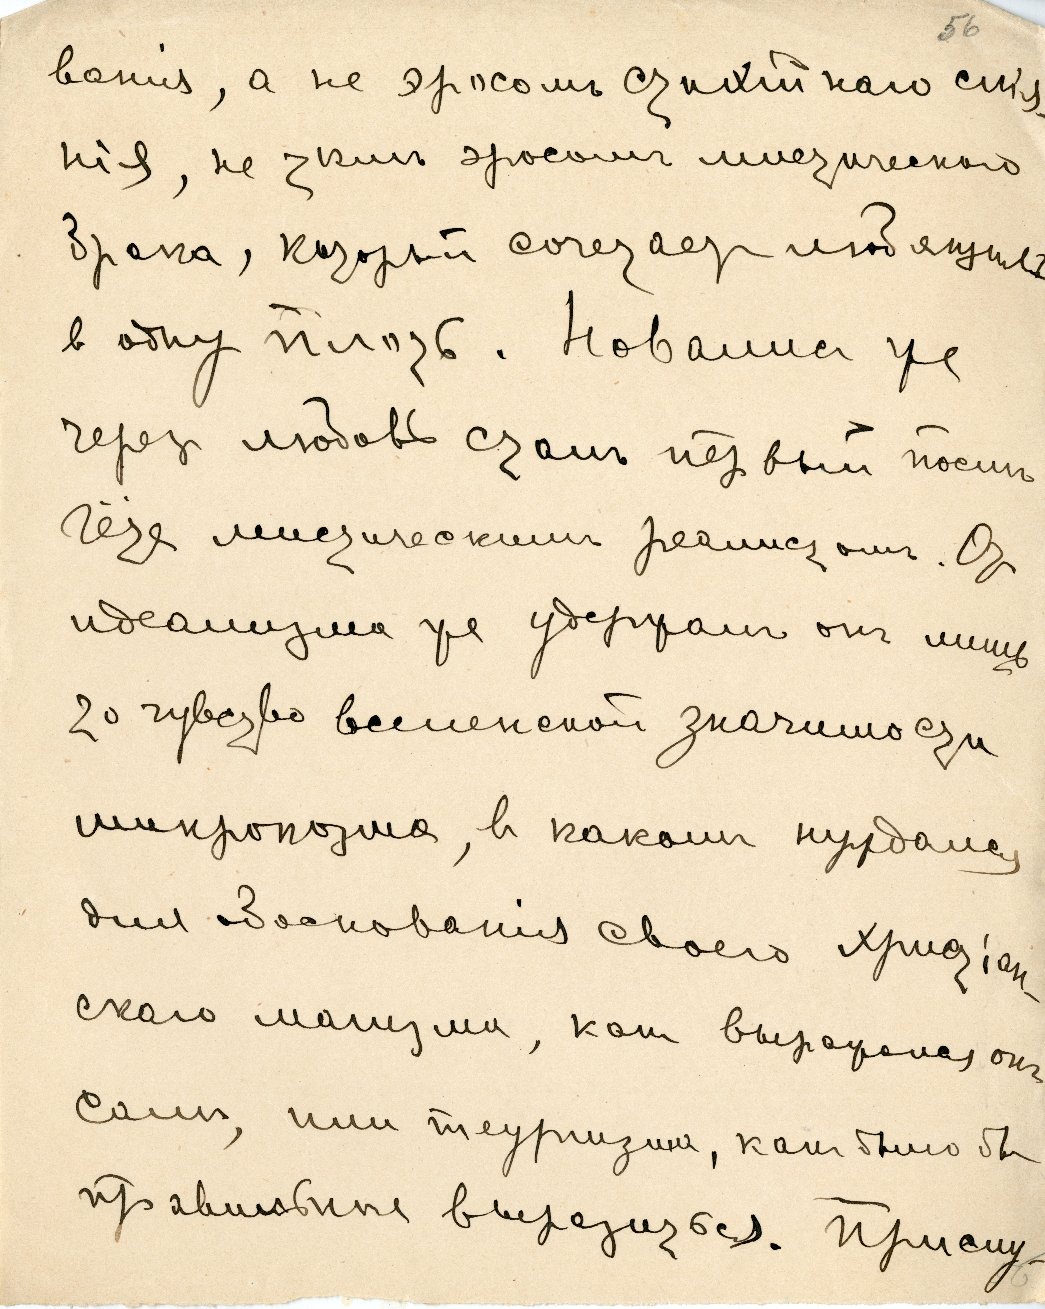 56
ванія, а не эросомъ слия-
нія, не тѣмъ эросомъ мистическаго
брака, который сочетаетъ любящихъ
в одну плоть. Новалисъ же
через любовь сталъ первый послѣ
Гёте мистическимъ реалистомъ. От
идеализма же удержалъ онъ лишь
то чувство вселенской значимости
микрокозма, в какомъ нуждался
для обоснованія своего христіан-
скаго магизма, какъ выражался онъ
самъ, или теургизма, какъ было бы
правильнѣе выразиться. Присту-